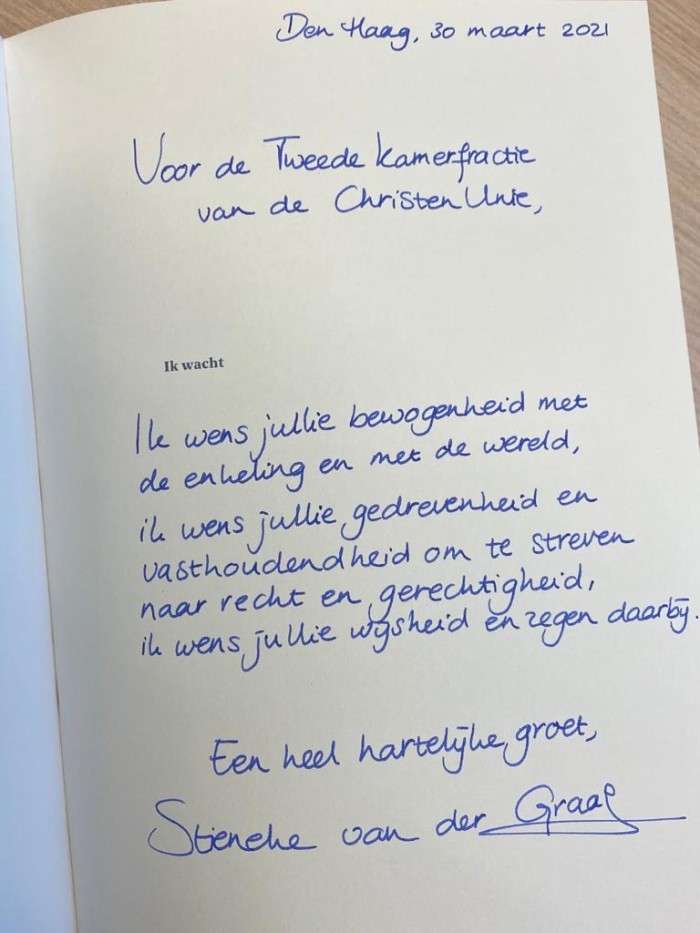 Den Haag, 30 maart 2021
Voor de Tweede Kamerfractie
van de ChristenUnie,
Ik wacht
Ik wens jullie bewogenheid met
de enkeling en met de wereld,
ik wens jullie gedrevenheid en
vasthoudendheid om te streven
naar recht en gerechtigheid,
ik wens jullie wijsheid en zegen daarbij.
Een heel hartelijke groet,
Stieneke van der Graaf